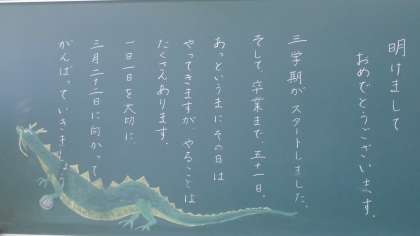 明けまして
おめでとうございます。
三学期がスタートしました。
そして、卒業まで、五十一日。
あっというまにその日は
やってきますが、やることは
たくさんあります。
一日一日を大切に
三月二十二日に向かって
がんばっていきましょう